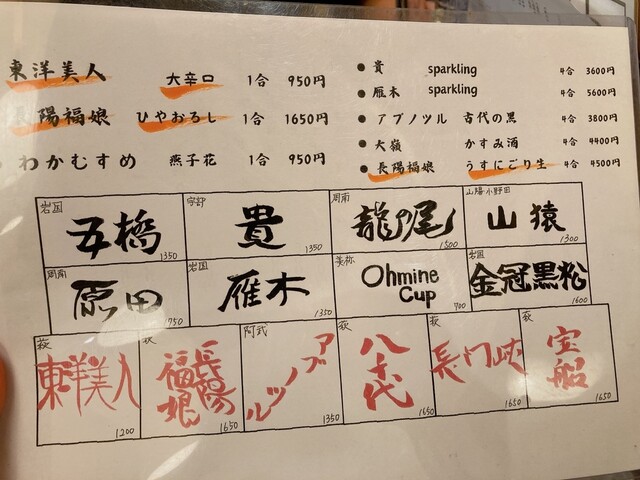 東洋美人 大辛口 1合 950円
長陽福娘 ひやおろし 1合 1650円
わかむすめ 燕子花 1合 950円
● 貴 sparkling 4合 3600円
● 雁木 sparkling 4合 5600円
● アブノツル 古代の黒 4合 3800円
● 大嶺 かすみ酒 4合 4400円
● 長陽福娘 うすにごり生 4合 4500円
岩国 五橋 1350
宇部 貴 1350
周南 龍乃尾 1500
山陽小野田 山猿 1300
周南 原田 750
岩国 雁木 1350
美祢 Ohmine Cup 700
岩国 金冠黒松 1600
萩 東洋美人 1200
萩 長陽福娘 1650
阿武 アブノツル 1350
萩 八千代 1650
萩 長門峡 1650
萩 宝船 1650